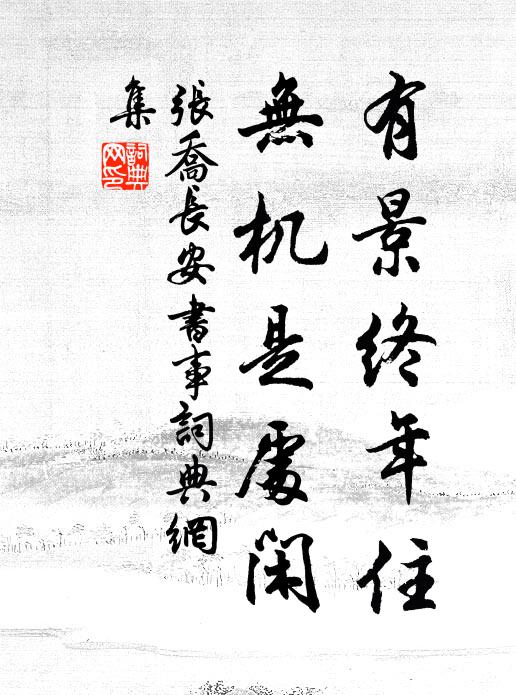 有景終年住
無机是處閑
張喬長安書事詞典網
集
詞典
网印